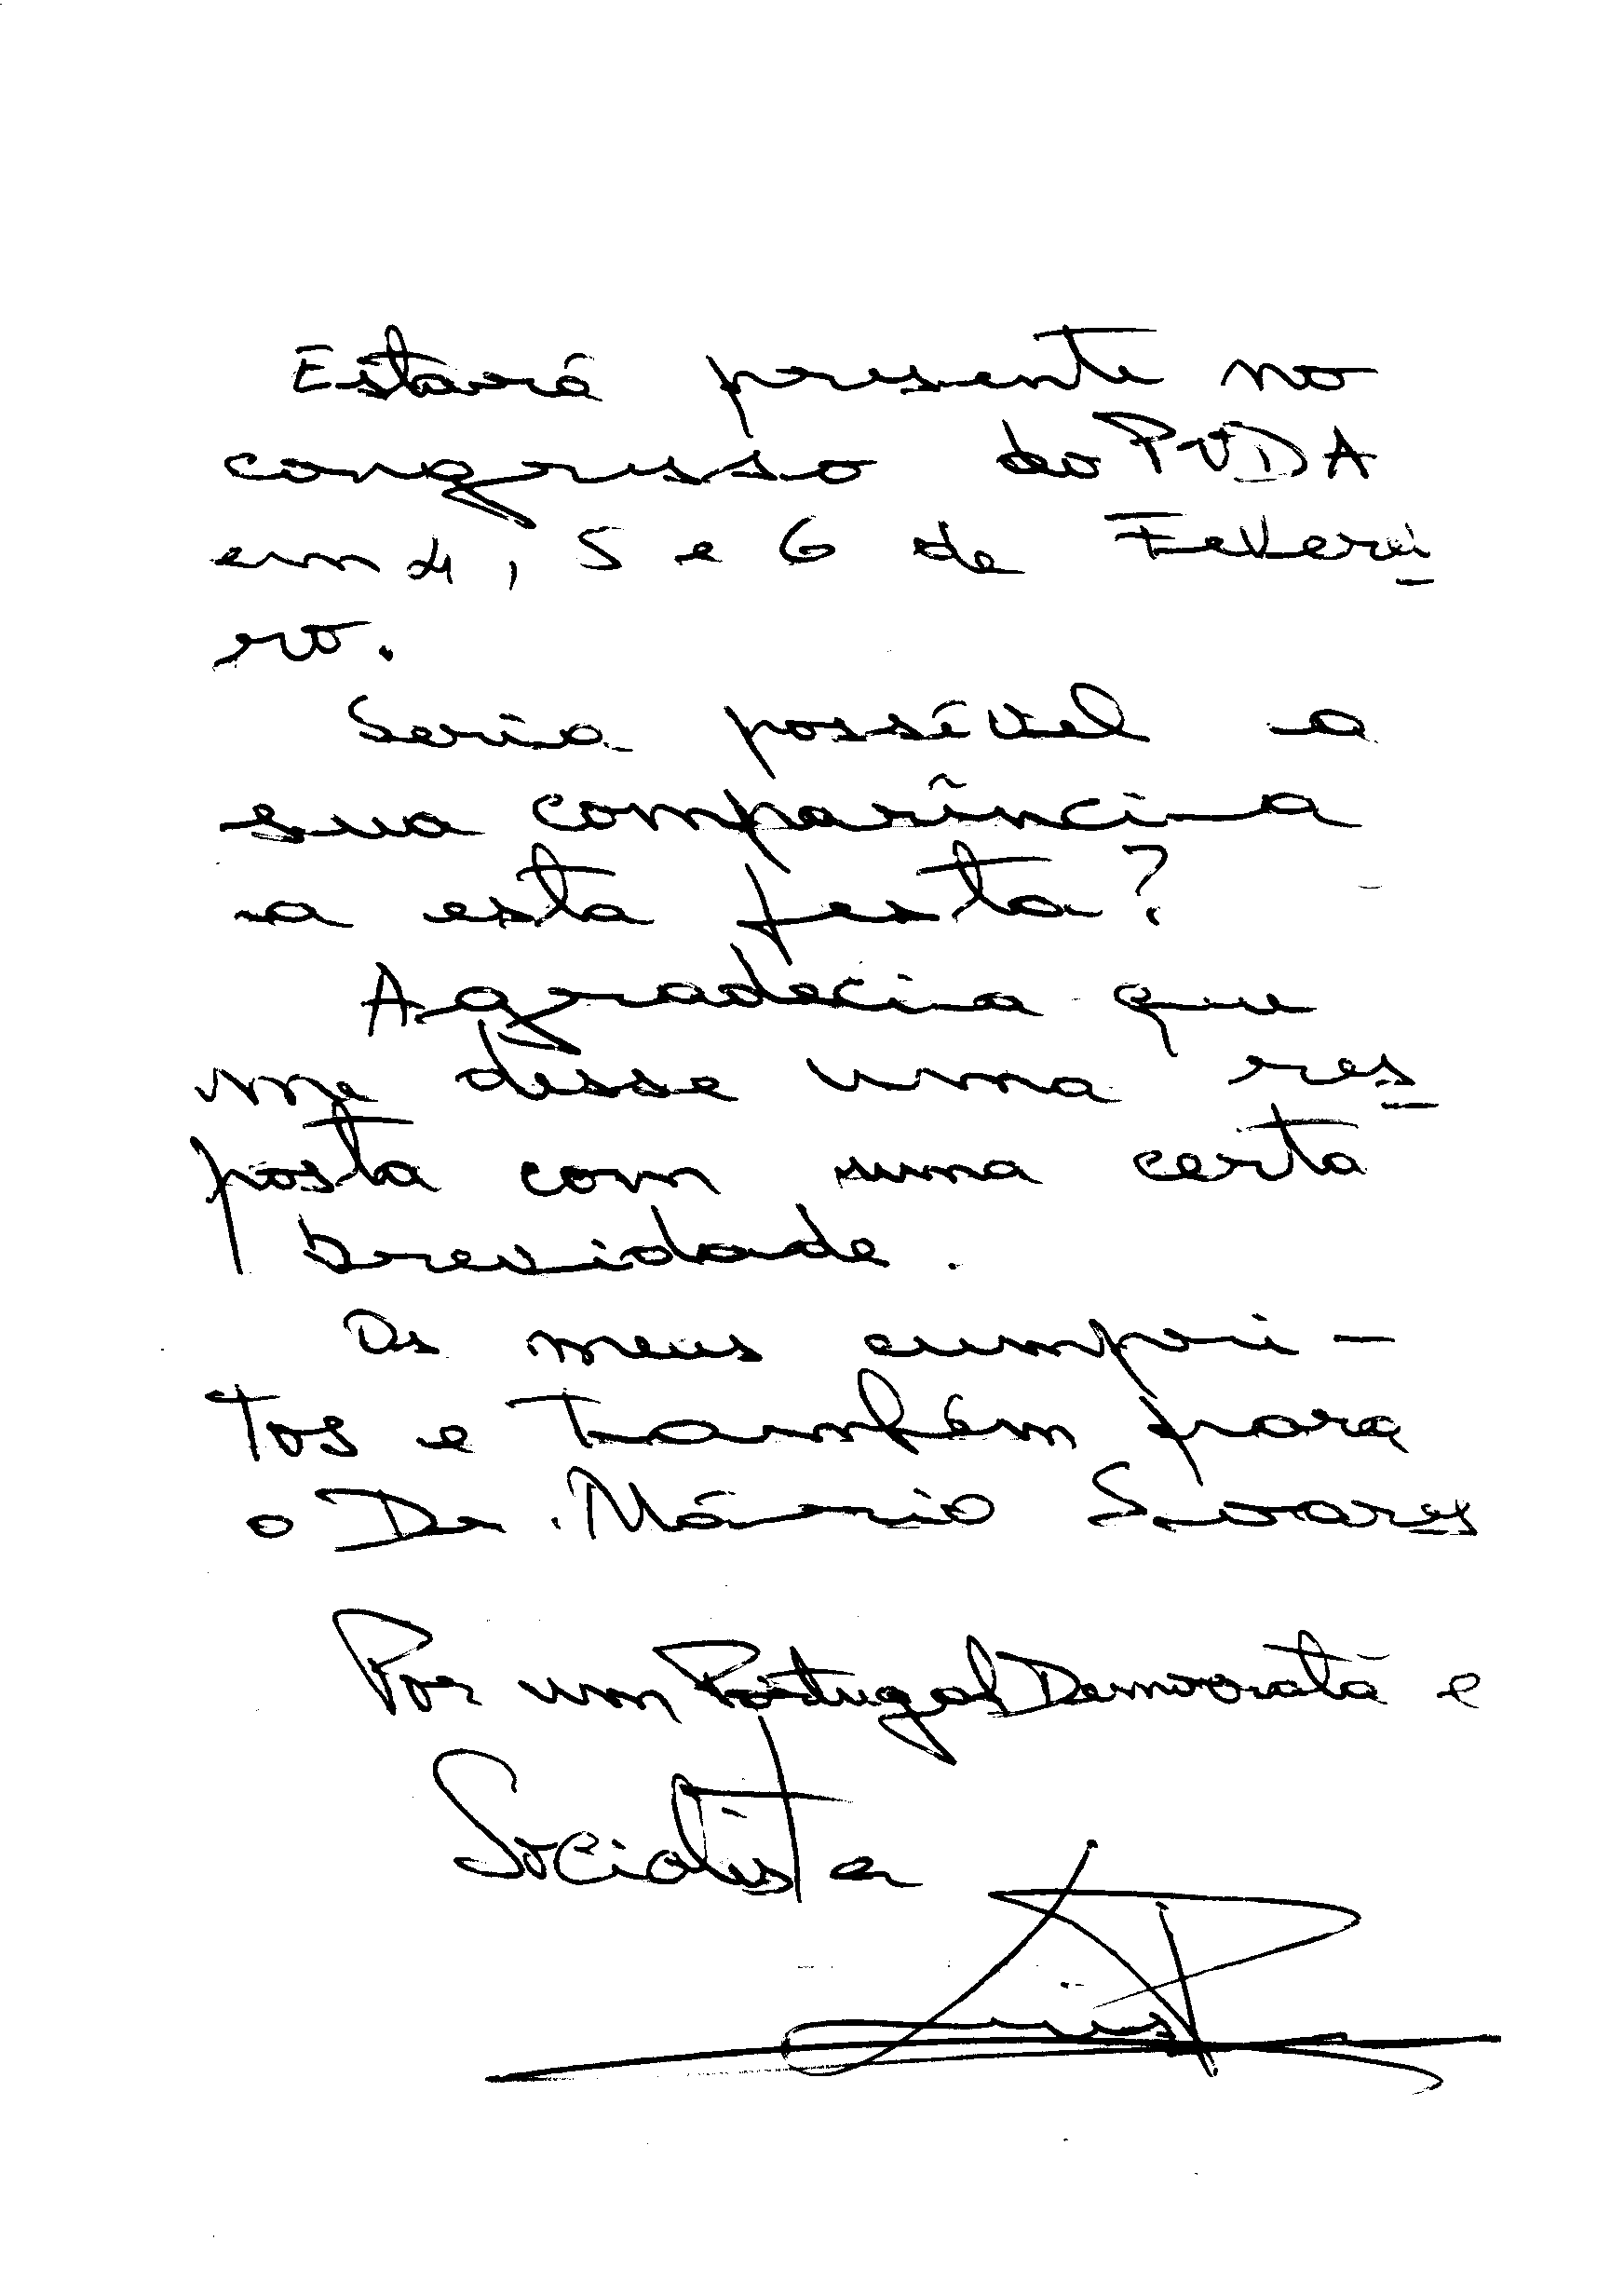 Estará presente no
congresso do PVDA
em 4, 5 e 6 de Feverei
ro.
Seria possível a
sua comparência
a esta festa?
Agradecia que
me desse uma res
posta com uma certa
brevidade.
Os meus cumpri-
tos e também para
o Dr. Mário Soares
Por um Portugal Democrata e
Socialista